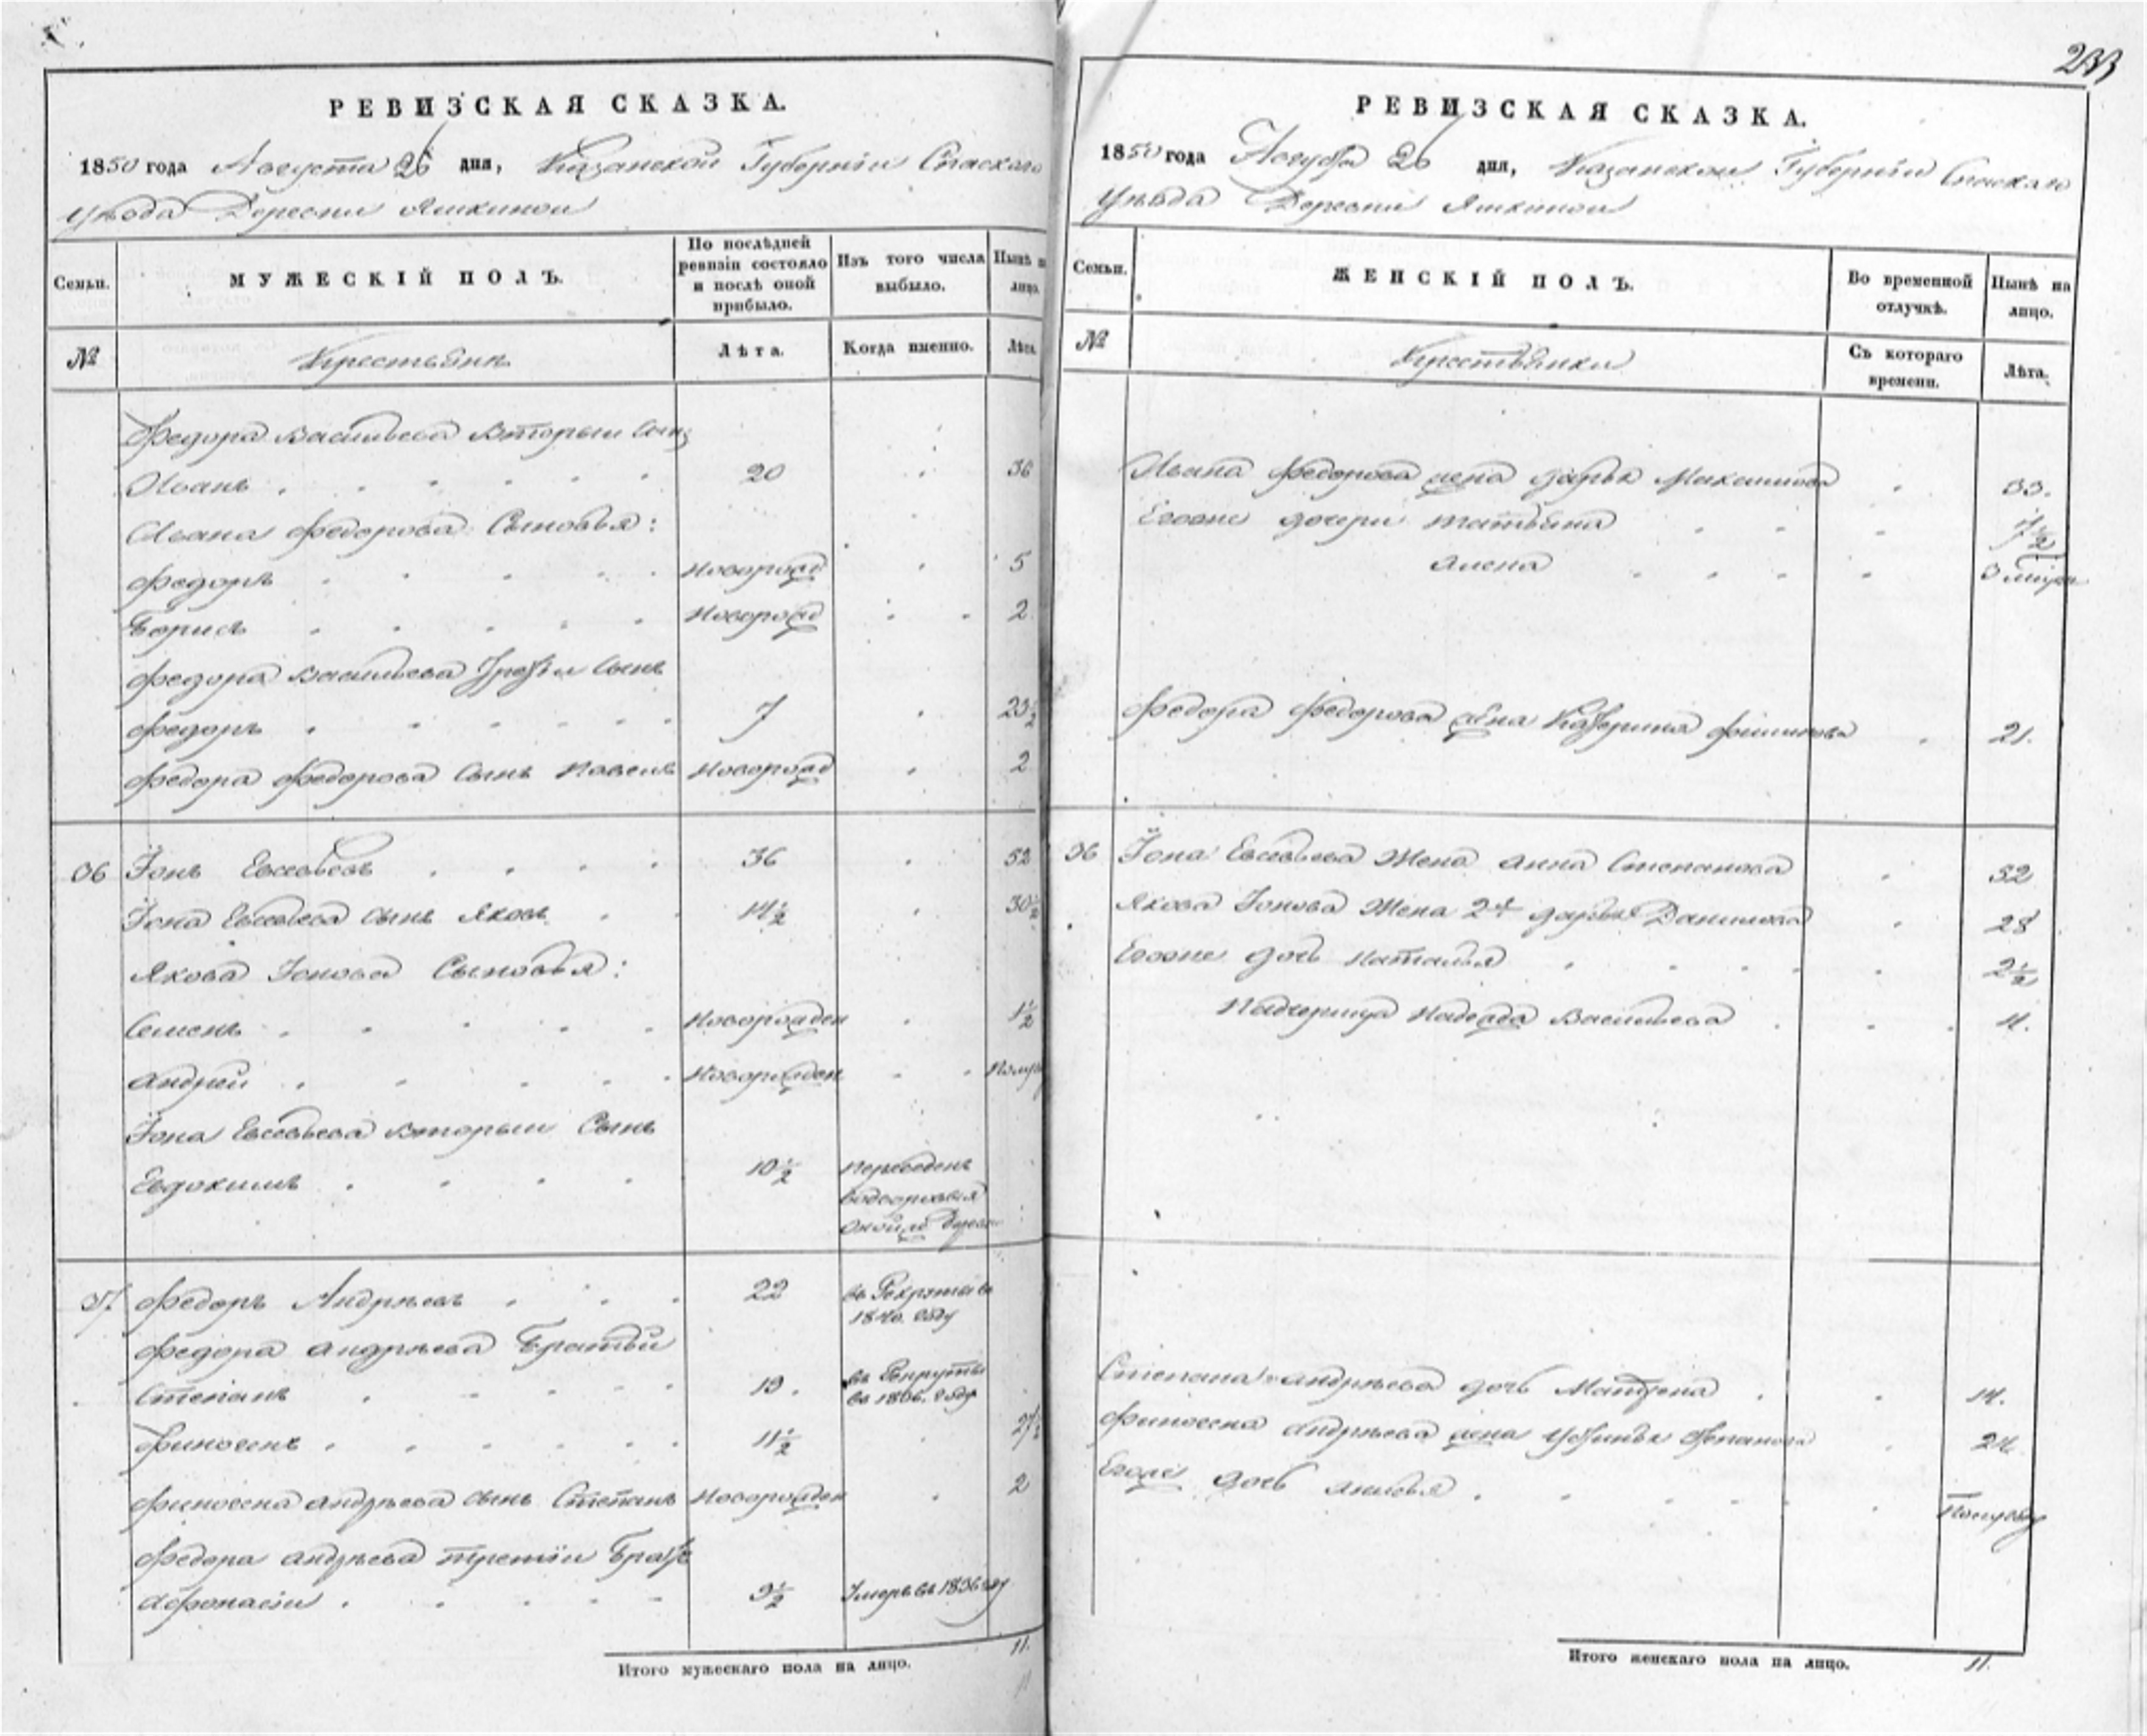 РЕВИЗСКАЯ СКАЗКА.
1850 года Августа 26 дня, Казанской Губернiи Спаскаго
Уѣзда Деревни Яшкиной
Семьи.
МУЖЕСКІЙ ПОЛЪ.
По послѣдней ревизіи состояло и послѣ оной прибыло.
Изъ того числа выбыло.
Нынѣ на лицо.
№
Крестьянъ
Лѣта.
Когда именно.
Лѣта.
Федора Васильева вторый сынъ
Иванъ 20 36
Ивана Федорова Сыновья:
Федоръ новорожд 5
Борисъ новорожд 2
Федора Васильева Третiи сынъ
Федоръ 7 23½
Федора Федорова сынъ Павелъ новорожд 2
36 Іонъ Евсевьевъ 36 52
Іона Евсевьева сынъ Яковъ 14½ 30½
Якова Іонова Сыновья:
Семенъ новорожден 1½
Андрей новорожден полуг
Іона Евсевьева вторыи Сынъ
Евдокимъ 10½ переведенъ
37 Федоръ Андрѣевъ 22 въ Рекруты въ
1840. году
Федора Андрѣева Братьи
Степанъ 19. въ Рекруты
въ 1836. году
Финогенъ 11½ 27½
Финогена Андрѣева сынъ Степанъ новорожден 2
Федора Андрѣева третiи Братъ
Афонасiи 9½ Умеръ въ 1836 году
Итого мужескаго пола на лицо. 11.
РЕВИЗСКАЯ СКАЗКА.
1850 года Августа 26 дня, Казанской Губернiи Спаскаго
Уѣзда Деревни Яшкиной
Семьи.
ЖЕНСКІЙ ПОЛЪ.
Во временной отлучкѣ.
Нынѣ на лицо.
№
Крестьянки
Съ котораго времени.
Лѣта.
Ивана Федорова жена Дарья Максимова 33.
Егоже дочери Татьяна 7½
Алена
Федора Федорова жена Катерина 21.
36 Іона Евсевьева Жена Анна Степанова 52
Якова Іонова Жена 2я Дарья Данилова 28
Егоже дочь Наталья 2½
Падчерица Надежда Васильева 11.
Степана Андрѣева дочь Матрена 14.
Финогена Андрѣева жена Устинья Степанова 24.
Егоже дочь полугоду
Итого женскаго пола на лицо. 11.